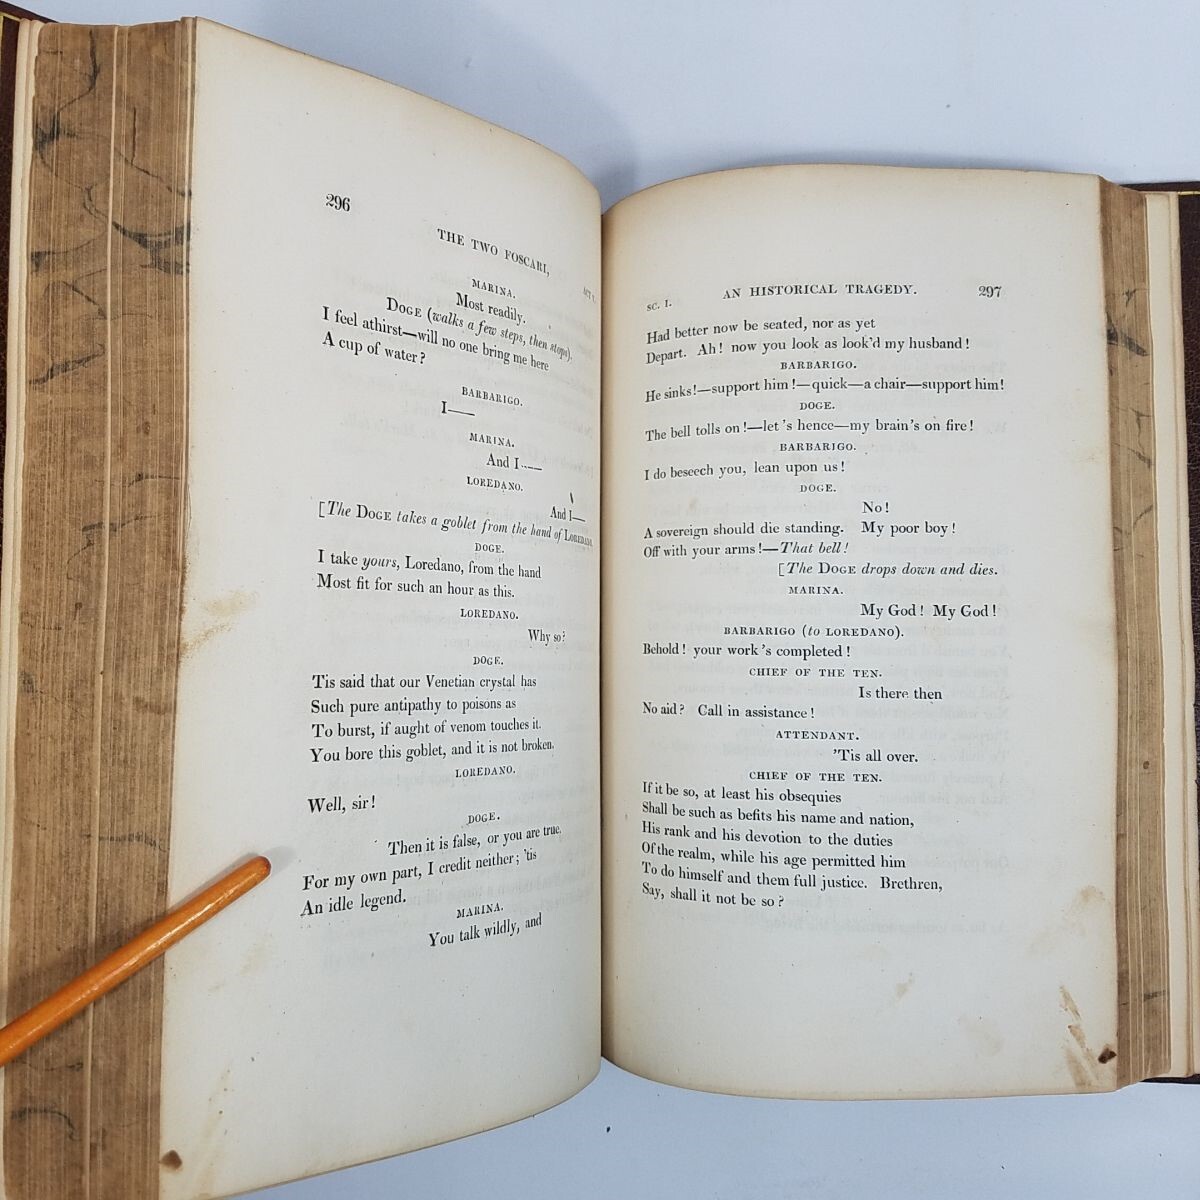 296
THE TWO FOSCARI,
ACT V.
MARINA.
Most readily.
DOGE (walks a few steps, then stops).
I feel athirst—will no one bring me here
A cup of water?
BARBARIGO.
I——
MARINA.
And I——
LOREDANO.
And I—
[The DOGE takes a goblet from the hand of LOREDANO.
DOGE.
I take yours, Loredano, from the hand
Most fit for such an hour as this.
LOREDANO.
Why so?
DOGE.
Tis said that our Venetian crystal has
Such pure antipathy to poisons as
To burst, if aught of venom touches it.
You bore this goblet, and it is not broken.
LOREDANO.
Well, sir!
DOGE.
Then it is false, or you are true.
For my own part, I credit neither; 'tis
An idle legend.
MARINA.
You talk wildly, and
SC. I.
AN HISTORICAL TRAGEDY.
297
Had better now be seated, nor as yet
Depart. Ah! now you look as look'd my husband!
BARBARIGO.
He sinks!—support him!—quick—a chair—support him!
DOGE.
The bell tolls on!—let's hence—my brain's on fire!
BARBARIGO.
I do beseech you, lean upon us!
DOGE.
No!
A sovereign should die standing. My poor boy!
Off with your arms!—That bell!
[The DOGE drops down and dies.
MARINA.
My God! My God!
BARBARIGO (to LOREDANO).
Behold! your work's completed!
CHIEF OF THE TEN.
Is there then
No aid? Call in assistance!
ATTENDANT.
'Tis all over.
CHIEF OF THE TEN.
If it be so, at least his obsequies
Shall be such as befits his name and nation,
His rank and his devotion to the duties
Of the realm, while his age permitted him
To do himself and them full justice. Brethren,
Say, shall it not be so?